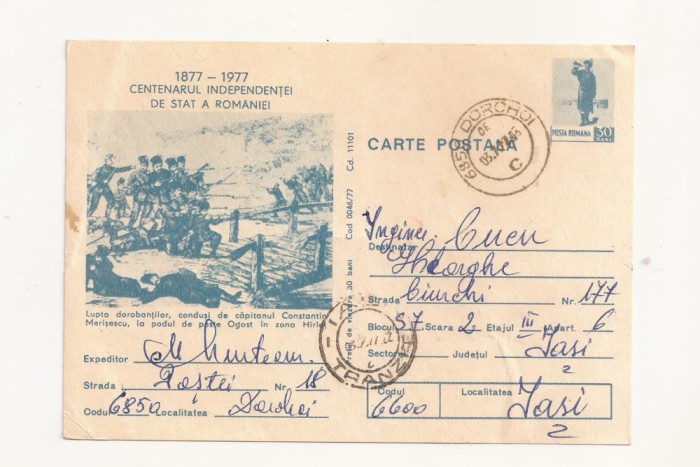 1877 – 1977
CENTENARUL INDEPENDENȚEI
DE STAT A ROMÂNIEI
POSTA ROMANA 30 BANI
CARTE POȘTALĂ
6850 DOROHOI
C
Cod 0046/77 Cd. 11101
30 bani
Lupta dorobanților, conduși de căpitanul Constantin
Merișescu, la podul de peste Ogost în zona Hîrleț
Expeditor M Munteanu
Strada Poștei Nr 18
Codul 6850 Localitatea Dorohoi
TRANZIT
Inginer Cucu
Destinatar Gheorghe
Strada Ciurchi Nr. 177
Blocul S7 Scara 2 Etajul III Apart. 6
Sectorul Județul Iasi
2
Codul Localitatea
6600 Iasi
2